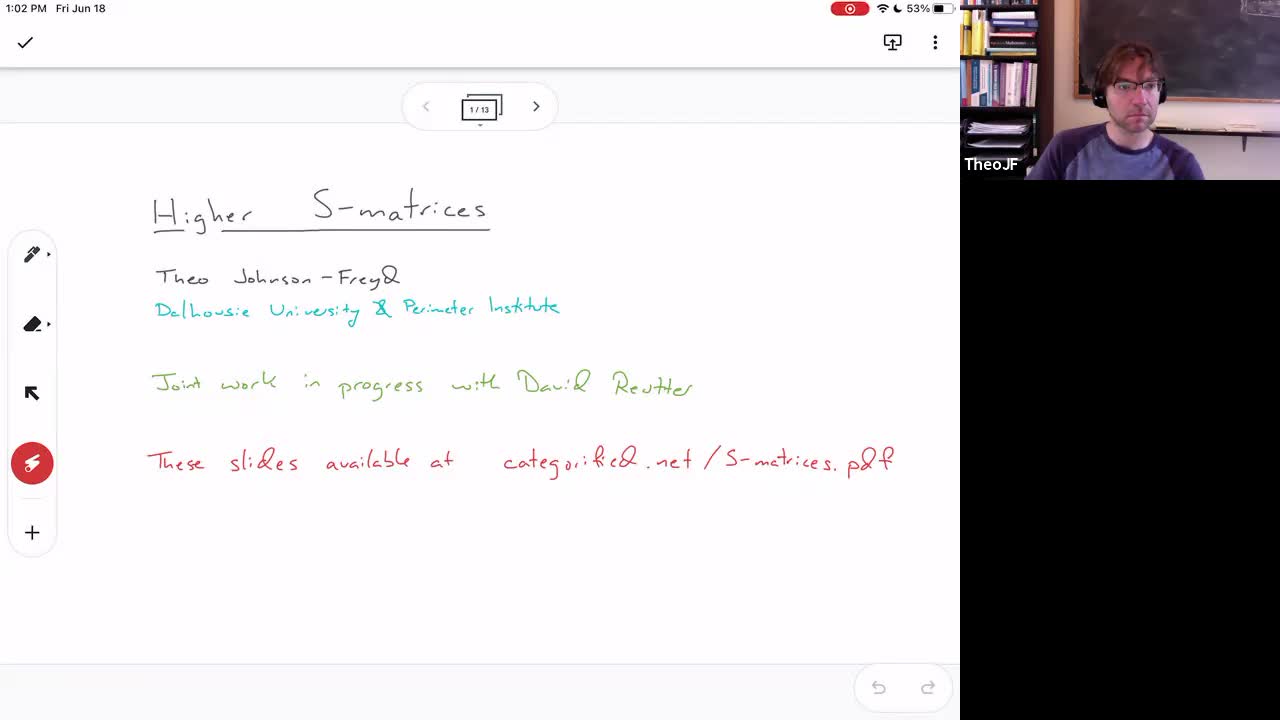 1:02 PM Fri Jun 18
53%
1 / 13
Higher S-matrices
Theo Johnson-Freyd
Dalhousie University & Perimeter Institute
Joint work in progress with David Reutter
These slides available at categorified.net/S-matrices.pdf
TheoJF